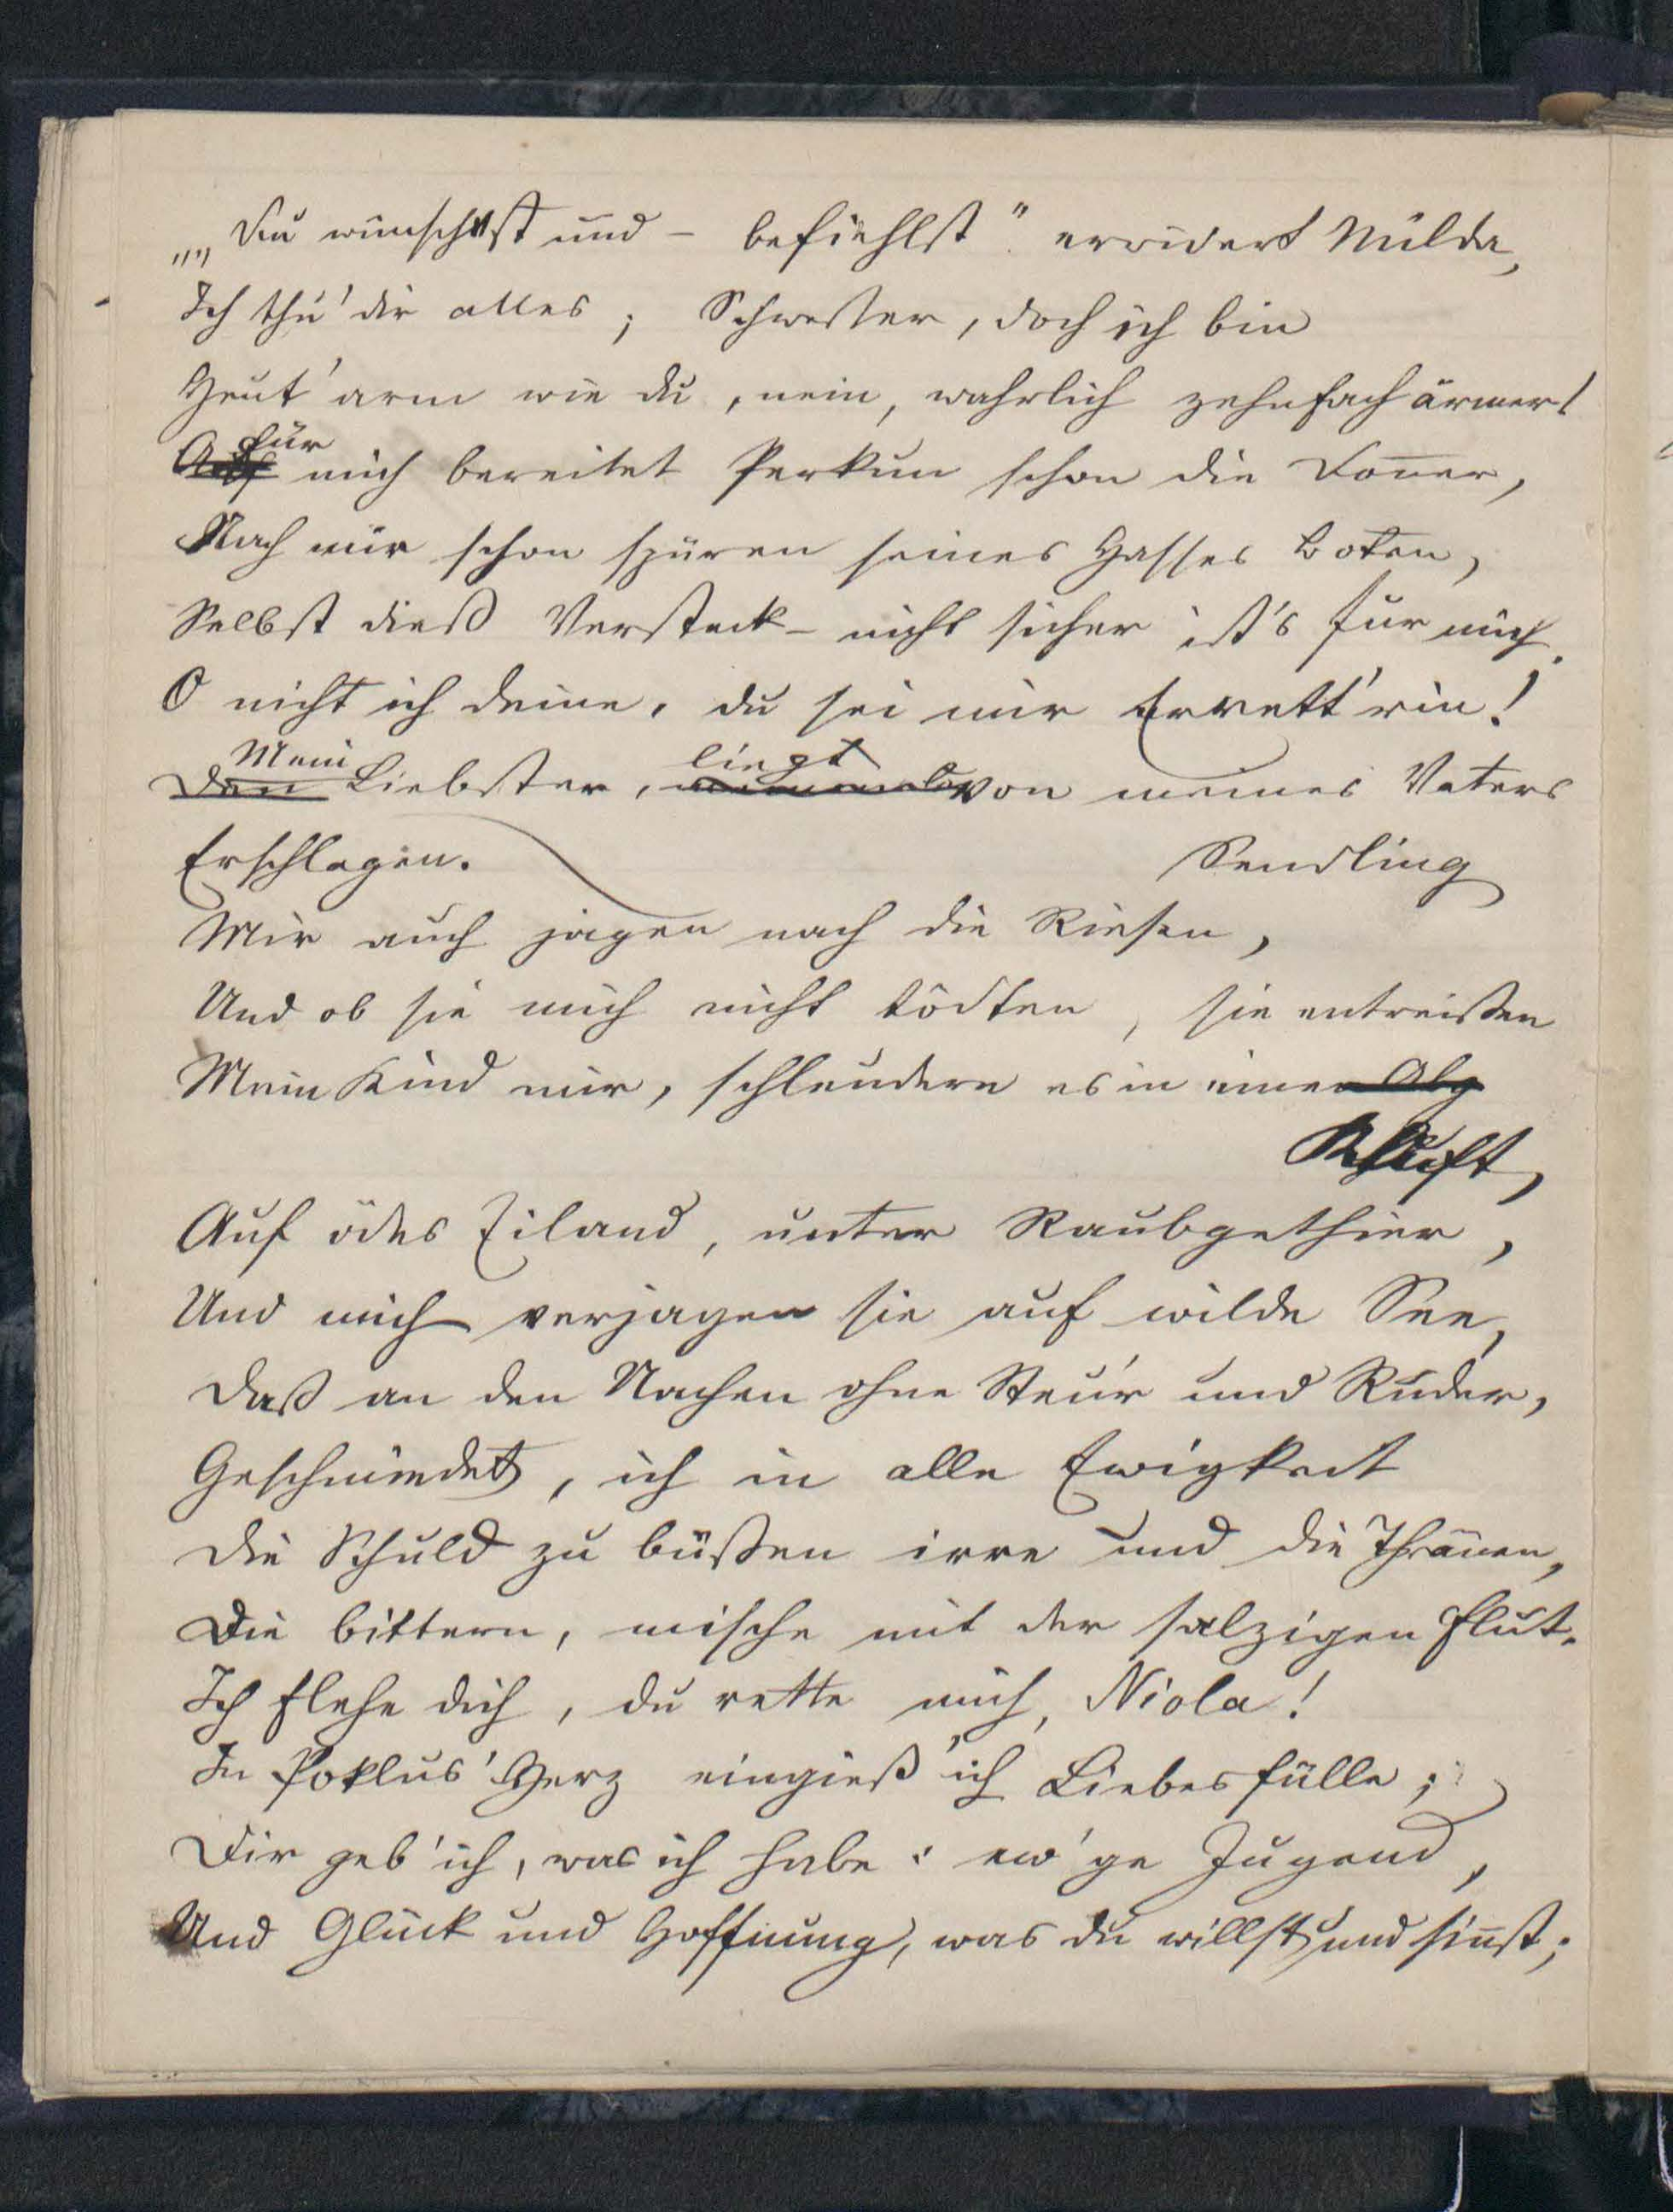 „„Du wünschest und – befiehlst“ erwidert Milda,
Ich thu' dir alles; Schwester, doch ich bin
Heut' arm wie du, nein, wahrlich zehnfach ärmer!
Auf für mich bereitet Perkun schon die Doñer,
Nach mir schon spüren seines Hasses Boten,
Selbst dieß Versteck – nicht sicher ist's für mich.
O nicht ich deine, du sei mir Errett'rin!
Den Mein Liebster, liegt von meines Vaters
Sendling
Erschlagen.
Mir auch jagen nach die Riesen,
Und ob sie mich nicht tödten, sie entreißen
Mein Kind mir, schleudern es in einen
Kluft,
Auf ödes Eiland, unter Raubgethier,
Und mich verjagen sie auf wilde See,
Daß an den Nachen ohne Steu'r und Ruder,
Geschmiedet, ich in alle Ewigkeit
Die Schuld zu büßen irre und die Thränen,
Die bittern, mische mit der salzigen Flut.
Ich flehe dich, du rette mich, Niola!
In Poklus' Herz eingieß' ich Liebesfülle;
Dir geb' ich, was ich habe: ew'ge Jugend,
Und Glück und Hoffnung, was du willst und siñst;